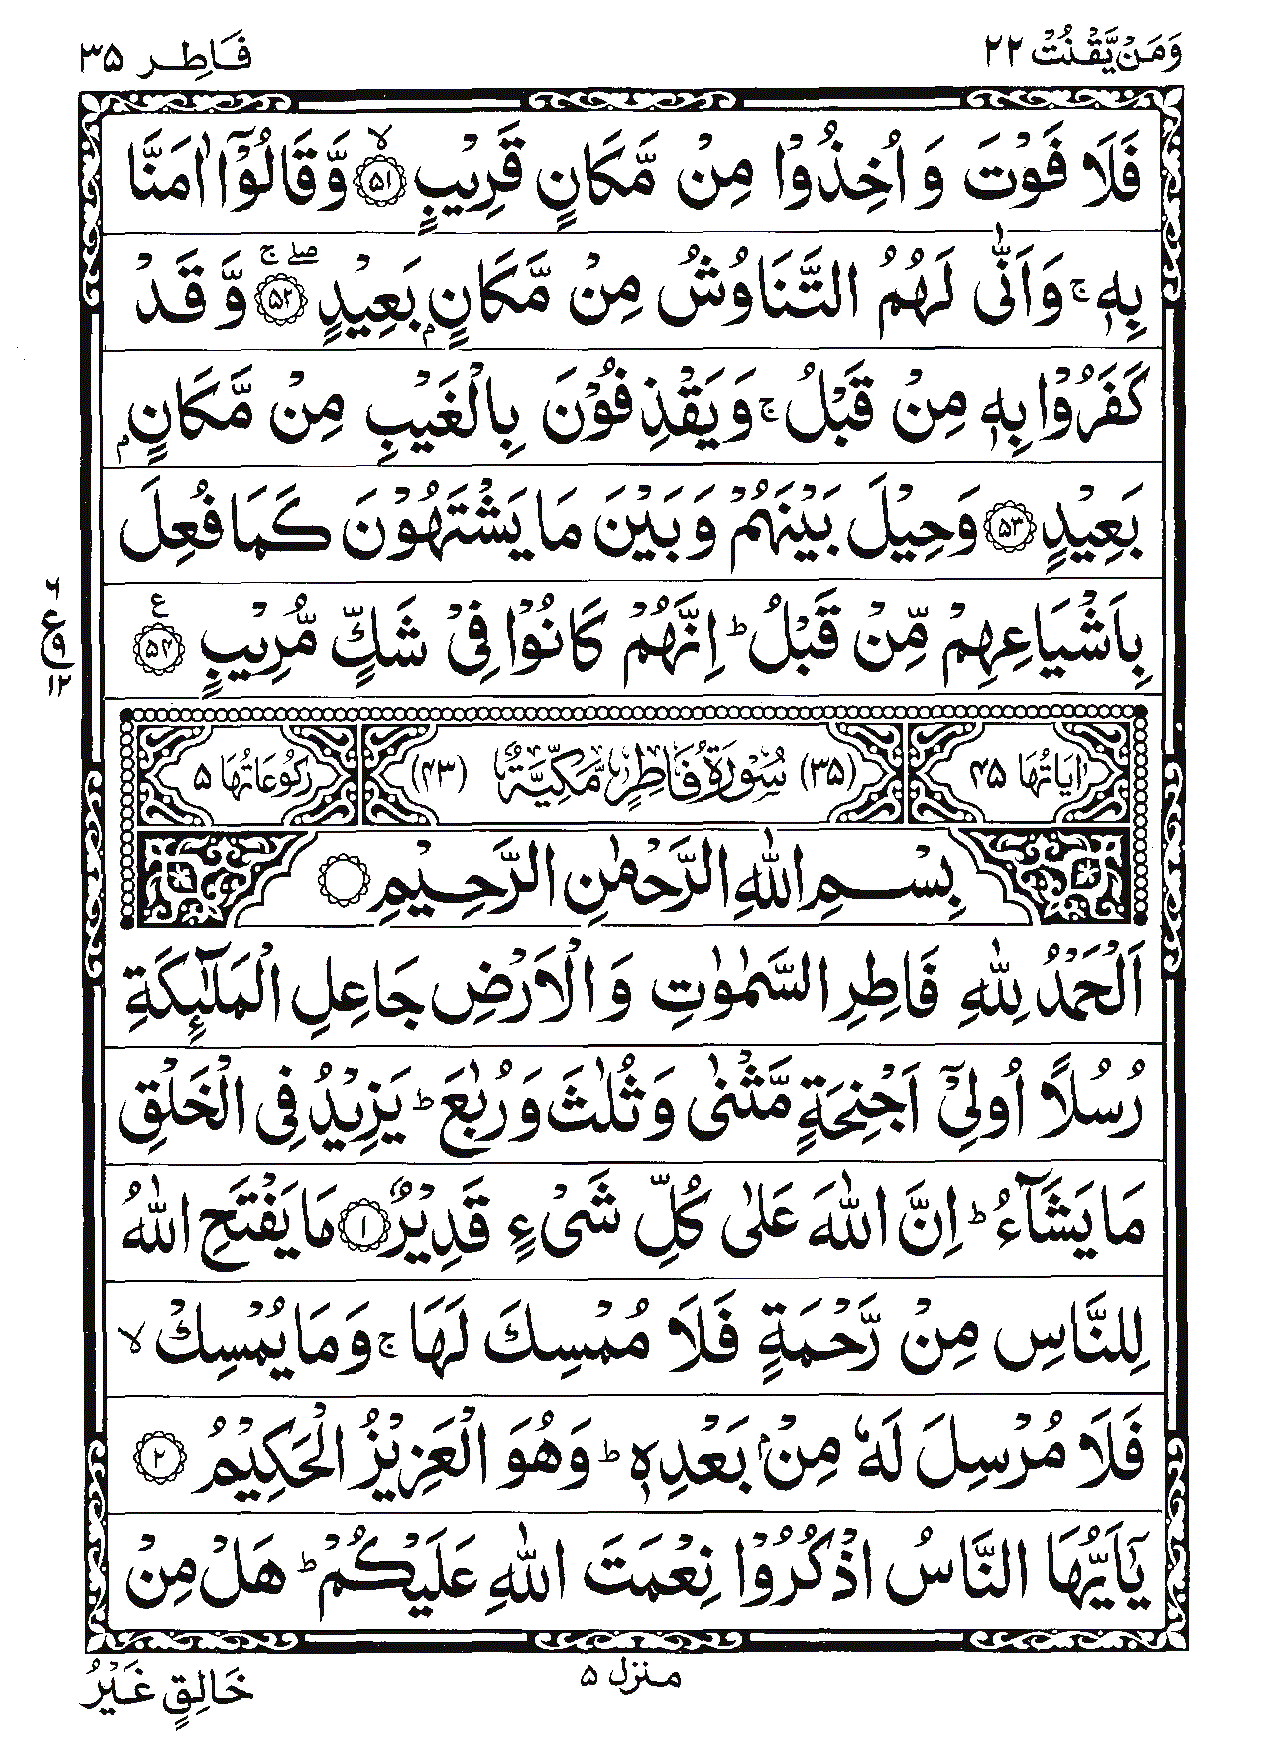 وَمَنْ يَّقْنُتْ ٢٢
فَاطِر ٣٥
فَلَا فَوْتَ وَ اُخِذُوْا مِنْ مَّكَانٍ قَرِيْبٍ ۙ﴿۵۱﴾ وَّ قَالُوْۤا اٰمَنَّا
بِهٖ ۚ وَ اَنّٰى لَهُمُ التَّنَاوُشُ مِنْ مَّكَانٍۭ بَعِيْدٍ ۚۖ﴿۵۲﴾ وَّ قَدْ
كَفَرُوْا بِهٖ مِنْ قَبْلُ ۚ وَ يَقْذِفُوْنَ بِالْغَيْبِ مِنْ مَّكَانٍۭ
بَعِيْدٍ ﴿۵۳﴾ وَ حِيْلَ بَيْنَهُمْ وَ بَيْنَ مَا يَشْتَهُوْنَ كَمَا فُعِلَ
بِاَشْيَاعِهِمْ مِّنْ قَبْلُ ؕ اِنَّهُمْ كَانُوْا فِيْ شَكٍّ مُّرِيْبٍ ﴿۵۴﴾ ع
٦ ع ٩ ١٢
اٰيَاتُهَا ۴۵ (۳۵) سُوْرَةُ فَاطِرٍ مَّكِّيَّةٌ (۴۳) رُكُوْعَاتُهَا ۵
بِسْمِ اللّٰهِ الرَّحْمٰنِ الرَّحِيْمِ
اَلْحَمْدُ لِلّٰهِ فَاطِرِ السَّمٰوٰتِ وَ الْاَرْضِ جَاعِلِ الْمَلٰٓئِكَةِ
رُسُلًا اُولِيْۤ اَجْنِحَةٍ مَّثْنٰى وَ ثُلٰثَ وَ رُبٰعَ ؕ يَزِيْدُ فِي الْخَلْقِ
مَا يَشَآءُ ؕ اِنَّ اللّٰهَ عَلٰى كُلِّ شَيْءٍ قَدِيْرٌ ﴿۱﴾ مَا يَفْتَحِ اللّٰهُ
لِلنَّاسِ مِنْ رَّحْمَةٍ فَلَا مُمْسِكَ لَهَا ۚ وَ مَا يُمْسِكْ ۙ
فَلَا مُرْسِلَ لَهٗ مِنْۢ بَعْدِهٖ ؕ وَ هُوَ الْعَزِيْزُ الْحَكِيْمُ ﴿۲﴾
يٰۤاَيُّهَا النَّاسُ اذْكُرُوْا نِعْمَتَ اللّٰهِ عَلَيْكُمْ ؕ هَلْ مِنْ
منزل ۵
خَالِقٍ غَيْرُ